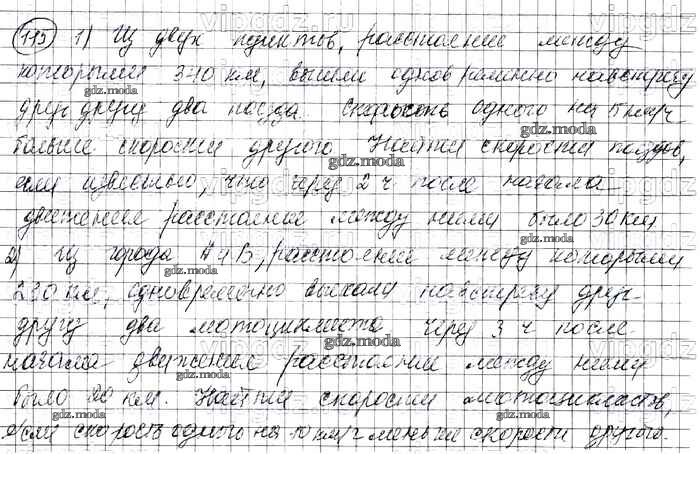 115 1) Из двух пунктов, расстояние между
которыми 340 км, вышли одновременно навстречу
друг другу два поезда. Скорость одного на 5 км/ч
больше скорости другого. Найти скорости поездов,
если известно, что через 2 ч после начала
движения расстояние между ними было 30 км
2) Из города А и В, расстояние между которыми
230 км, одновременно выехали навстречу друг
другу два мотоциклиста. Через 3 ч после
начала движения расстояние между ними
было 20 км. Найти скорости мотоциклистов,
если скорость одного на 10 км/ч меньше скорости другого.
gdz.moda
vipgdz.ru